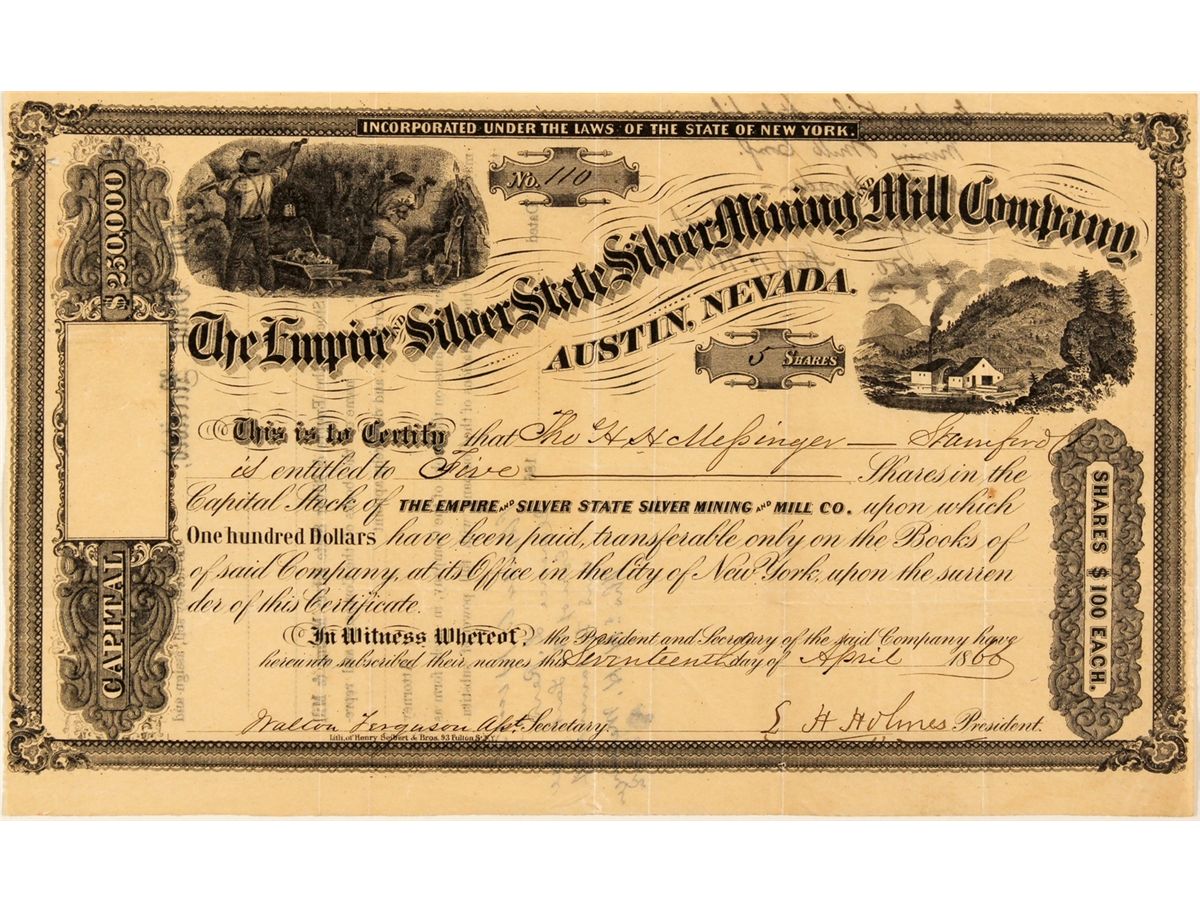 INCORPORATED UNDER THE LAWS OF THE STATE OF NEW YORK.
No. 110
$250,000
The Empire AND Silver State Silver Mining AND Mill Company,
AUSTIN, NEVADA.
5 SHARES
This is to Certify that Tho H H Messinger — Stamford
is entitled to Five Shares in the
Capital Stock of THE EMPIRE AND SILVER STATE SILVER MINING AND MILL CO. upon which
One hundred Dollars have been paid, transferable only on the Books of
of said Company, at its Office in the City of New York, upon the surren
der of this Certificate.
In Witness Whereof, the President and Secretary of the said Company have
hereunto subscribed their names this Seventeenth day of April 186
Walton Ferguson Asst. Secretary.
E H Holmes President.
Lith. of Henry Seibert & Bros. 93 Fulton St. N.Y.
CAPITAL
SHARES $100 EACH.